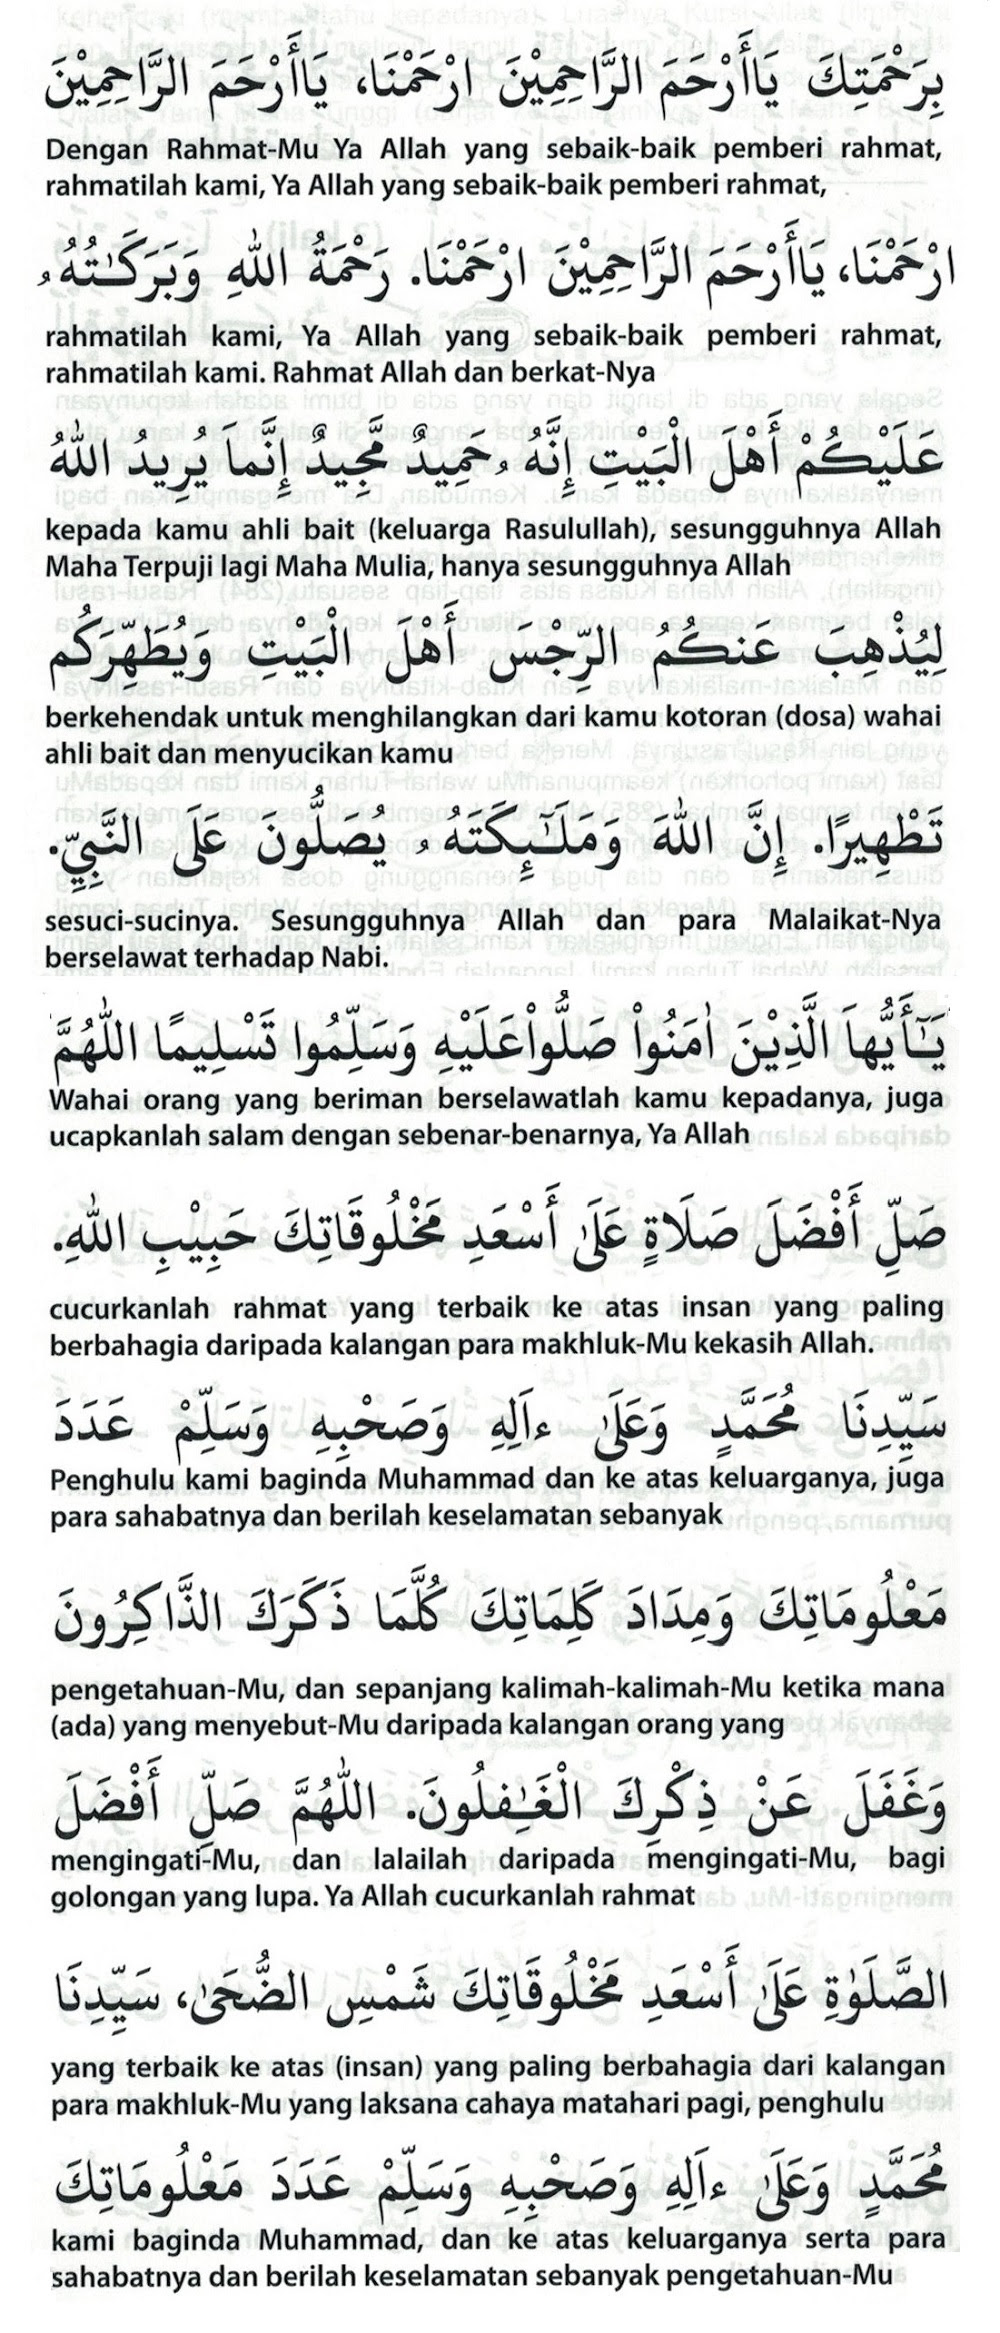 بِرَحْمَتِكَ يَاأَرْحَمَ الرَّاحِمِيْنَ ارْحَمْنَا، يَاأَرْحَمَ الرَّاحِمِيْنَ
Dengan Rahmat-Mu Ya Allah yang sebaik-baik pemberi rahmat,
rahmatilah kami, Ya Allah yang sebaik-baik pemberi rahmat,
ارْحَمْنَا، يَاأَرْحَمَ الرَّاحِمِيْنَ ارْحَمْنَا. رَحْمَةُ اللهِ وَبَرَكَـٰتُهُۥ
rahmatilah kami, Ya Allah yang sebaik-baik pemberi rahmat,
rahmatilah kami. Rahmat Allah dan berkat-Nya
عَلَيْكُمْ أَهْلَ الْبَيْتِ إِنَّهُۥ حَمِيدٌ مَّجِيدٌ إِنَّمَا يُرِيدُ اللهُ
kepada kamu ahli bait (keluarga Rasulullah), sesungguhnya Allah
Maha Terpuji lagi Maha Mulia, hanya sesungguhnya Allah
لِيُذْهِبَ عَنكُمُ الرِّجْسَ أَهْلَ الْبَيْتِ وَيُطَهِّرَكُمْ
berkehendak untuk menghilangkan dari kamu kotoran (dosa) wahai
ahli bait dan menyucikan kamu
تَطْهِيرًا. إِنَّ اللهَ وَمَلَـٰٓئِكَتَهُۥ يُصَلُّونَ عَلَى النَّبِيِّ.
sesuci-sucinya. Sesungguhnya Allah dan para Malaikat-Nya
berselawat terhadap Nabi.
يَـٰٓأَيُّهَا الَّذِيْنَ اٰمَنُوْا صَلُّوْا عَلَيْهِ وَسَلِّمُوا تَسْلِيمًا اللّٰهُمَّ
Wahai orang yang beriman berselawatlah kamu kepadanya, juga
ucapkanlah salam dengan sebenar-benarnya, Ya Allah
صَلِّ أَفْضَلَ صَلَاةٍ عَلَىٰ أَسْعَدِ مَخْلُوقَاتِكَ حَبِيْبِ اللهِ.
cucurkanlah rahmat yang terbaik ke atas insan yang paling
berbahagia daripada kalangan para makhluk-Mu kekasih Allah.
سَيِّدِنَا مُحَمَّدٍ وَعَلَىٰ ءَالِهِ وَصَحْبِهِ وَسَلِّمْ عَدَدَ
Penghulu kami baginda Muhammad dan ke atas keluarganya, juga
para sahabatnya dan berilah keselamatan sebanyak
مَعْلُومَاتِكَ وَمِدَادَ كَلِمَاتِكَ كُلَّمَا ذَكَرَكَ الذَّاكِرُونَ
pengetahuan-Mu, dan sepanjang kalimah-kalimah-Mu ketika mana
(ada) yang menyebut-Mu daripada kalangan orang yang
وَغَفَلَ عَنْ ذِكْرِكَ الْغَـٰفِلُونَ. اللّٰهُمَّ صَلِّ أَفْضَلَ
mengingati-Mu, dan lalailah daripada mengingati-Mu, bagi
golongan yang lupa. Ya Allah cucurkanlah rahmat
الصَّلَوٰةِ عَلَىٰ أَسْعَدِ مَخْلُوقَاتِكَ شَمْسِ الضُّحَىٰ، سَيِّدِنَا
yang terbaik ke atas (insan) yang paling berbahagia dari kalangan
para makhluk-Mu yang laksana cahaya matahari pagi, penghulu
مُحَمَّدٍ وَعَلَىٰ ءَالِهِ وَصَحْبِهِ وَسَلِّمْ عَدَدَ مَعْلُومَاتِكَ
kami baginda Muhammad, dan ke atas keluarganya serta para
sahabatnya dan berilah keselamatan sebanyak pengetahuan-Mu